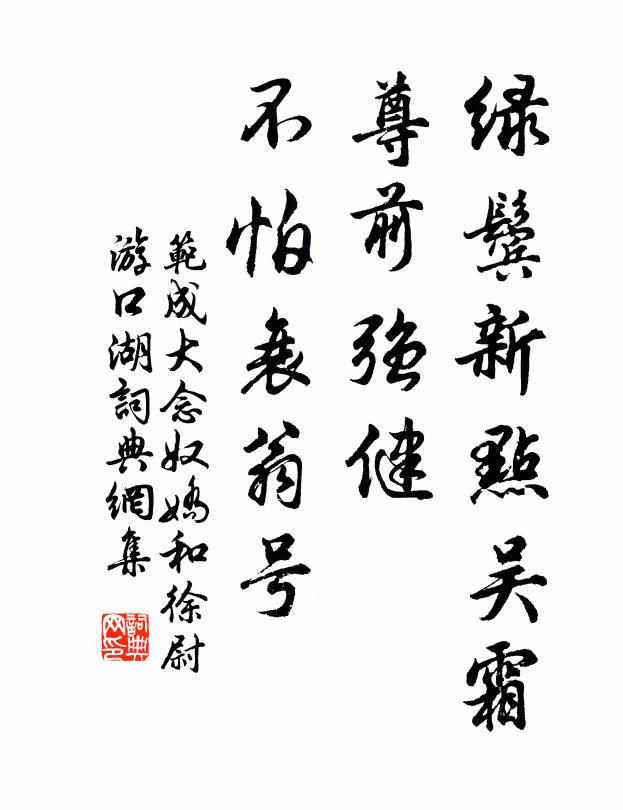 绿鬓新點吴霜
尊前强健
不怕衰翁号
範成大念奴嬌和徐尉
游口湖詞典網集
詞典
网印